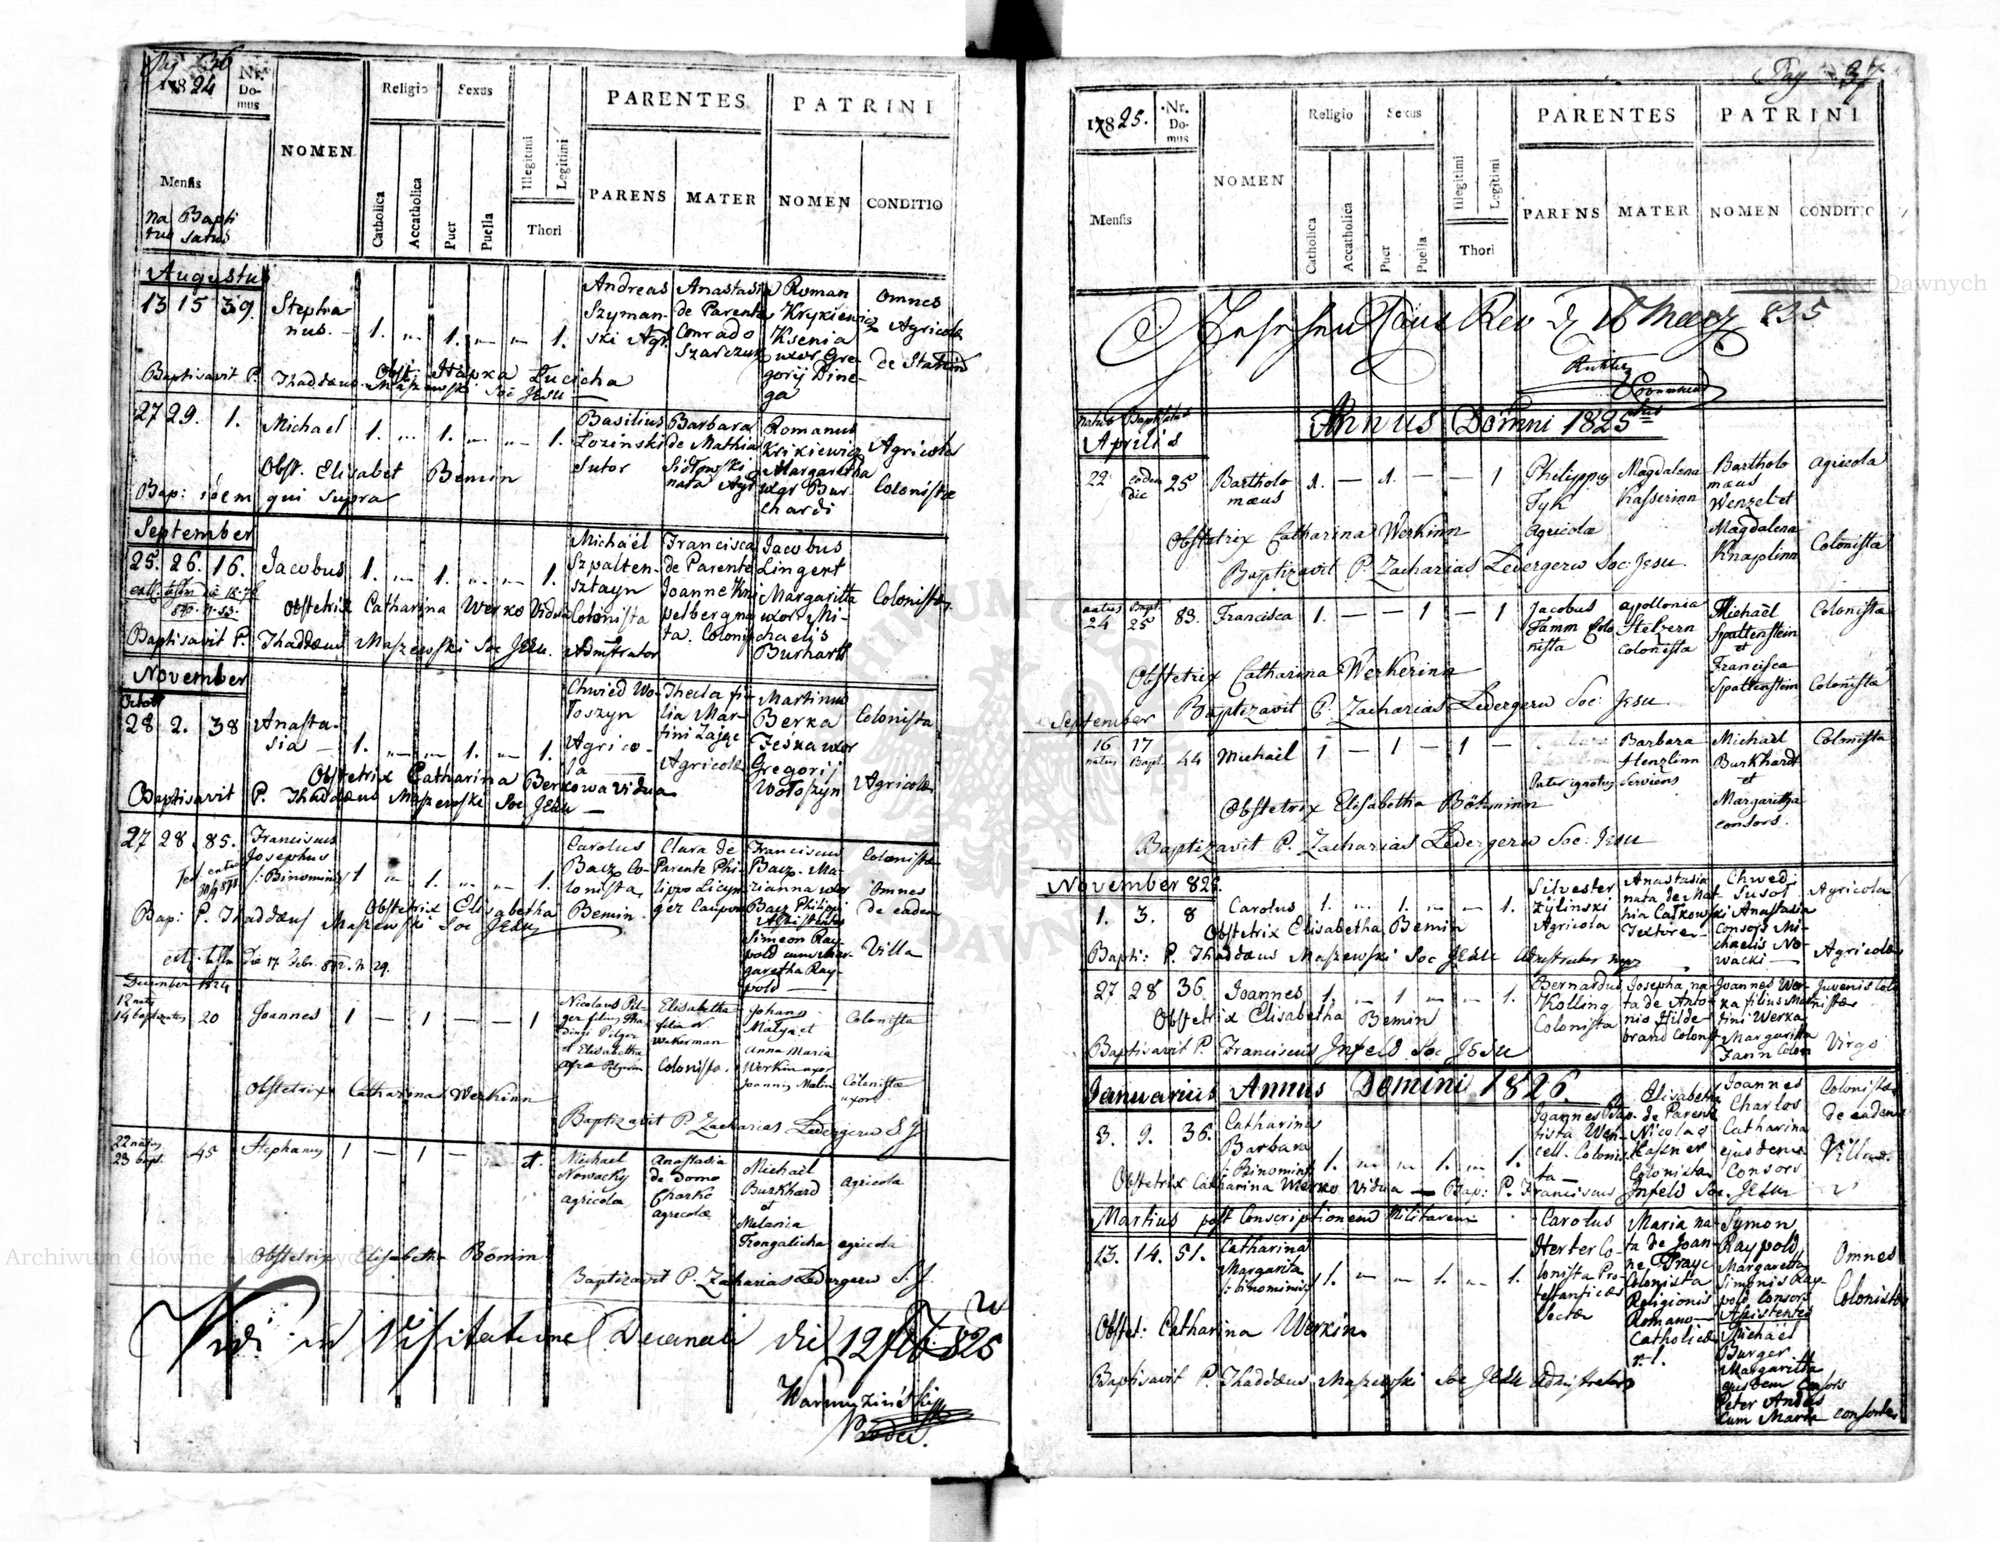 Pag 36
1824
Nr. Domus
NOMEN
Religio
Sexus
Illegitimi
Legitimi
PARENTES
PATRINI
Mensis
Catholica
Accatholica
Puer
Puella
Thori
PARENS
MATER
NOMEN
CONDITIO
natus Baptisatus
Augustus
13 15 39. Stephanus. 1. 1. 1.
Andreas Szymanski Agr.
Anastasia de Parente Conrado Szarczuk
Roman Krykiewicz Ksenia uxor Gregorij Dinega
Omnes Agricolae de Stanin
Obst: Hapka Lucicha
Baptisavit P. Thaddaeus Maszewski Soc JESU
27 29. 1. Michael 1. 1. 1.
Basilius Lozinski Sutor
Barbara de Mathia Sidlowski nata Agr
Romanus Krikiewicz Margaretha uxor Burchardi
Agricola
Colonistae
Obst. Elisabet Bemin
Bap: idem qui supra
September
25. 26. 16. Jacobus 1. 1. 1.
Michaël Szpaltensztayn Colonista
Francisca de Parente Joanne Knipelberg nata. Colonis
Jacobus Lingert Margaritta uxor Michaelis Burhartt
Colonistae
Obstetrix Catharina Werko Vidua
Baptisavit P. Thaddaeus Maszewski Soc JESU. Admstrator
November
Octob
28 2. 38 Anastasia 1. 1. 1.
Chwied Woloszyn Agricola
Thecla filia Martini Zając Agricolae
Martinus Berka Teśka uxor Gregorij Wołoszyn
Colonista
Agricolae
Obstetrix Catharina Berkowa vidua
Baptisavit P. Thaddaeus Maszewski Soc JESU
27 28 85. Franciscus Josephus /: Binominis 1 1. 1.
Carolus Bacz Colonista
Clara de Parente Philippo Licynger Caupone
Franciscus Bacz. Marianna uxor Bacz Philippi Assistentes Simeon Raypold cum Margaretha Raypold
Colonistae
Omnes de eadem Villa
Obstetrix Elisabetha Bemin
Bap: P. Thaddaeus Maszewski Soc JESU
December 1824
12 natus
14 baptizatus 20 Joannes 1 1 1
Elisabetha filia Wakerman Colonista.
Johann Matya et Anna Maria Werkin uxor Joannis
Colonista
Colonistae uxor
Obstetrix Catharina Werkinn
Baptizavit P. Zacharias Ledergerw S. J.
22 natus
23 bapt. 45 Stephanus 1 1
Michael Nowacky agricola
Anastasia de domo Charko agricolae
Michaël Burkhard et Melania Frongalicha
agricola
agricola
Obstetrix Elisabetha Bömin
Baptizavit P. Zacharias Ledergerw S. J.
Vidi in Visitatione Decanali die 12 feb. 825
Pag 37
1825.
Nr. Domus
NOMEN
Religio
Sexus
Illegitimi
Legitimi
PARENTES
PATRINI
Mensis
Catholica
Accatholica
Puer
Puella
Thori
PARENS
MATER
NOMEN
CONDITIO
825
Annus Domini 1825
natus Baptizatus
Aprilis
22 eodem die 25 Bartholomaeus 1. 1. 1
Philippus Tyk agricola
Magdalena Kasserinn
Bartholomaeus Wenzel et Magdalena Knaplinn
agricola
Colonista
Obstetrix Catharina Werkinn
Baptizavit P. Zacharias Ledergerw Soc: Jesu
natus 24 Bapt. 25 83. Francisca 1. 1 1
Jacobus Tamm Colonista
apollonia Stelzern Colonista
Michael Spaltenstein et Francisca Spaltenstein
Colonista
Colonista
Obstetrix Catharina Werkerinn
Baptizavit P. Zacharias Ledergerw Soc: Jesu
September
16 natus 17 Bapt. 44 Michaël 1 1 1
Pater ignotus
Barbara Henzlinn Serviens
Michael Burkhardt et Margaritha consors.
Colonista
Obstetrix Elisabetha Böhminn
Baptizavit P. Zacharias Ledergerw Soc: Jesu
November 825.
1. 3. 8 Carolus 1. 1. 1.
Silvester Zylinski Agricola
Anastasia nata de Mathia Catkowski Textore
Chwed: Susoł Anastasia Consors Michaelis Nowacki
Agricola
Agricolae
Obstetrix Elisabetha Bemin
Bapti: P. Thaddaeus Maszewski Soc JESU Admstrator
27 28 36. Joannes 1. 1 1.
Bernardus Kolling Colonista
Josepha nata de Antonio Hildebrand Colonist
Joannes Werka filius Martini Werka Margaritta Tann Colon
Juvenis Colonistae
Virgo
Obstetrix Elisabetha Bemin
Baptisavit P. Franciscus Infeld Soc JESU
Januarius Annus Domini 1826.
3. 9. 36. Catharina Barbara /: Binominis 1. 1. 1.
Joannes Baptista Wencell. Colonista
Elisabetha de Parente Nicolao Kasner Colonista
Joannes Charlos Catharina ejusdem Consors
Colonistae de eadem Villa.
Obstetrix Catharina Werko vidua Bap: P. Franciscus Infeld Soc. JESU
Martius post Conscriptionem Militarem
13. 14. 51. Catharina Margarita /: binominis 1. 1. 1.
Carolus Herter Colonista Protestanticae Sectae
Maria nata de Joanne Colonista Religionis Romano Catholicae
Symon Raypold Margaretta Simonis Raypold Consors Assistentes Michaël Burger Margaritta ejusdem Consors Peter Andes cum Maria consortes
Omnes Colonistae
Obstet: Catharina Werkin
Baptisavit P. Thaddaeus Maszewski Soc JESU Admistrator
Archiwum Główne Akt Dawnych
Archiwum Główne Akt Dawnych
ARCHIWUM GŁÓWNE AKT DAWNYCH